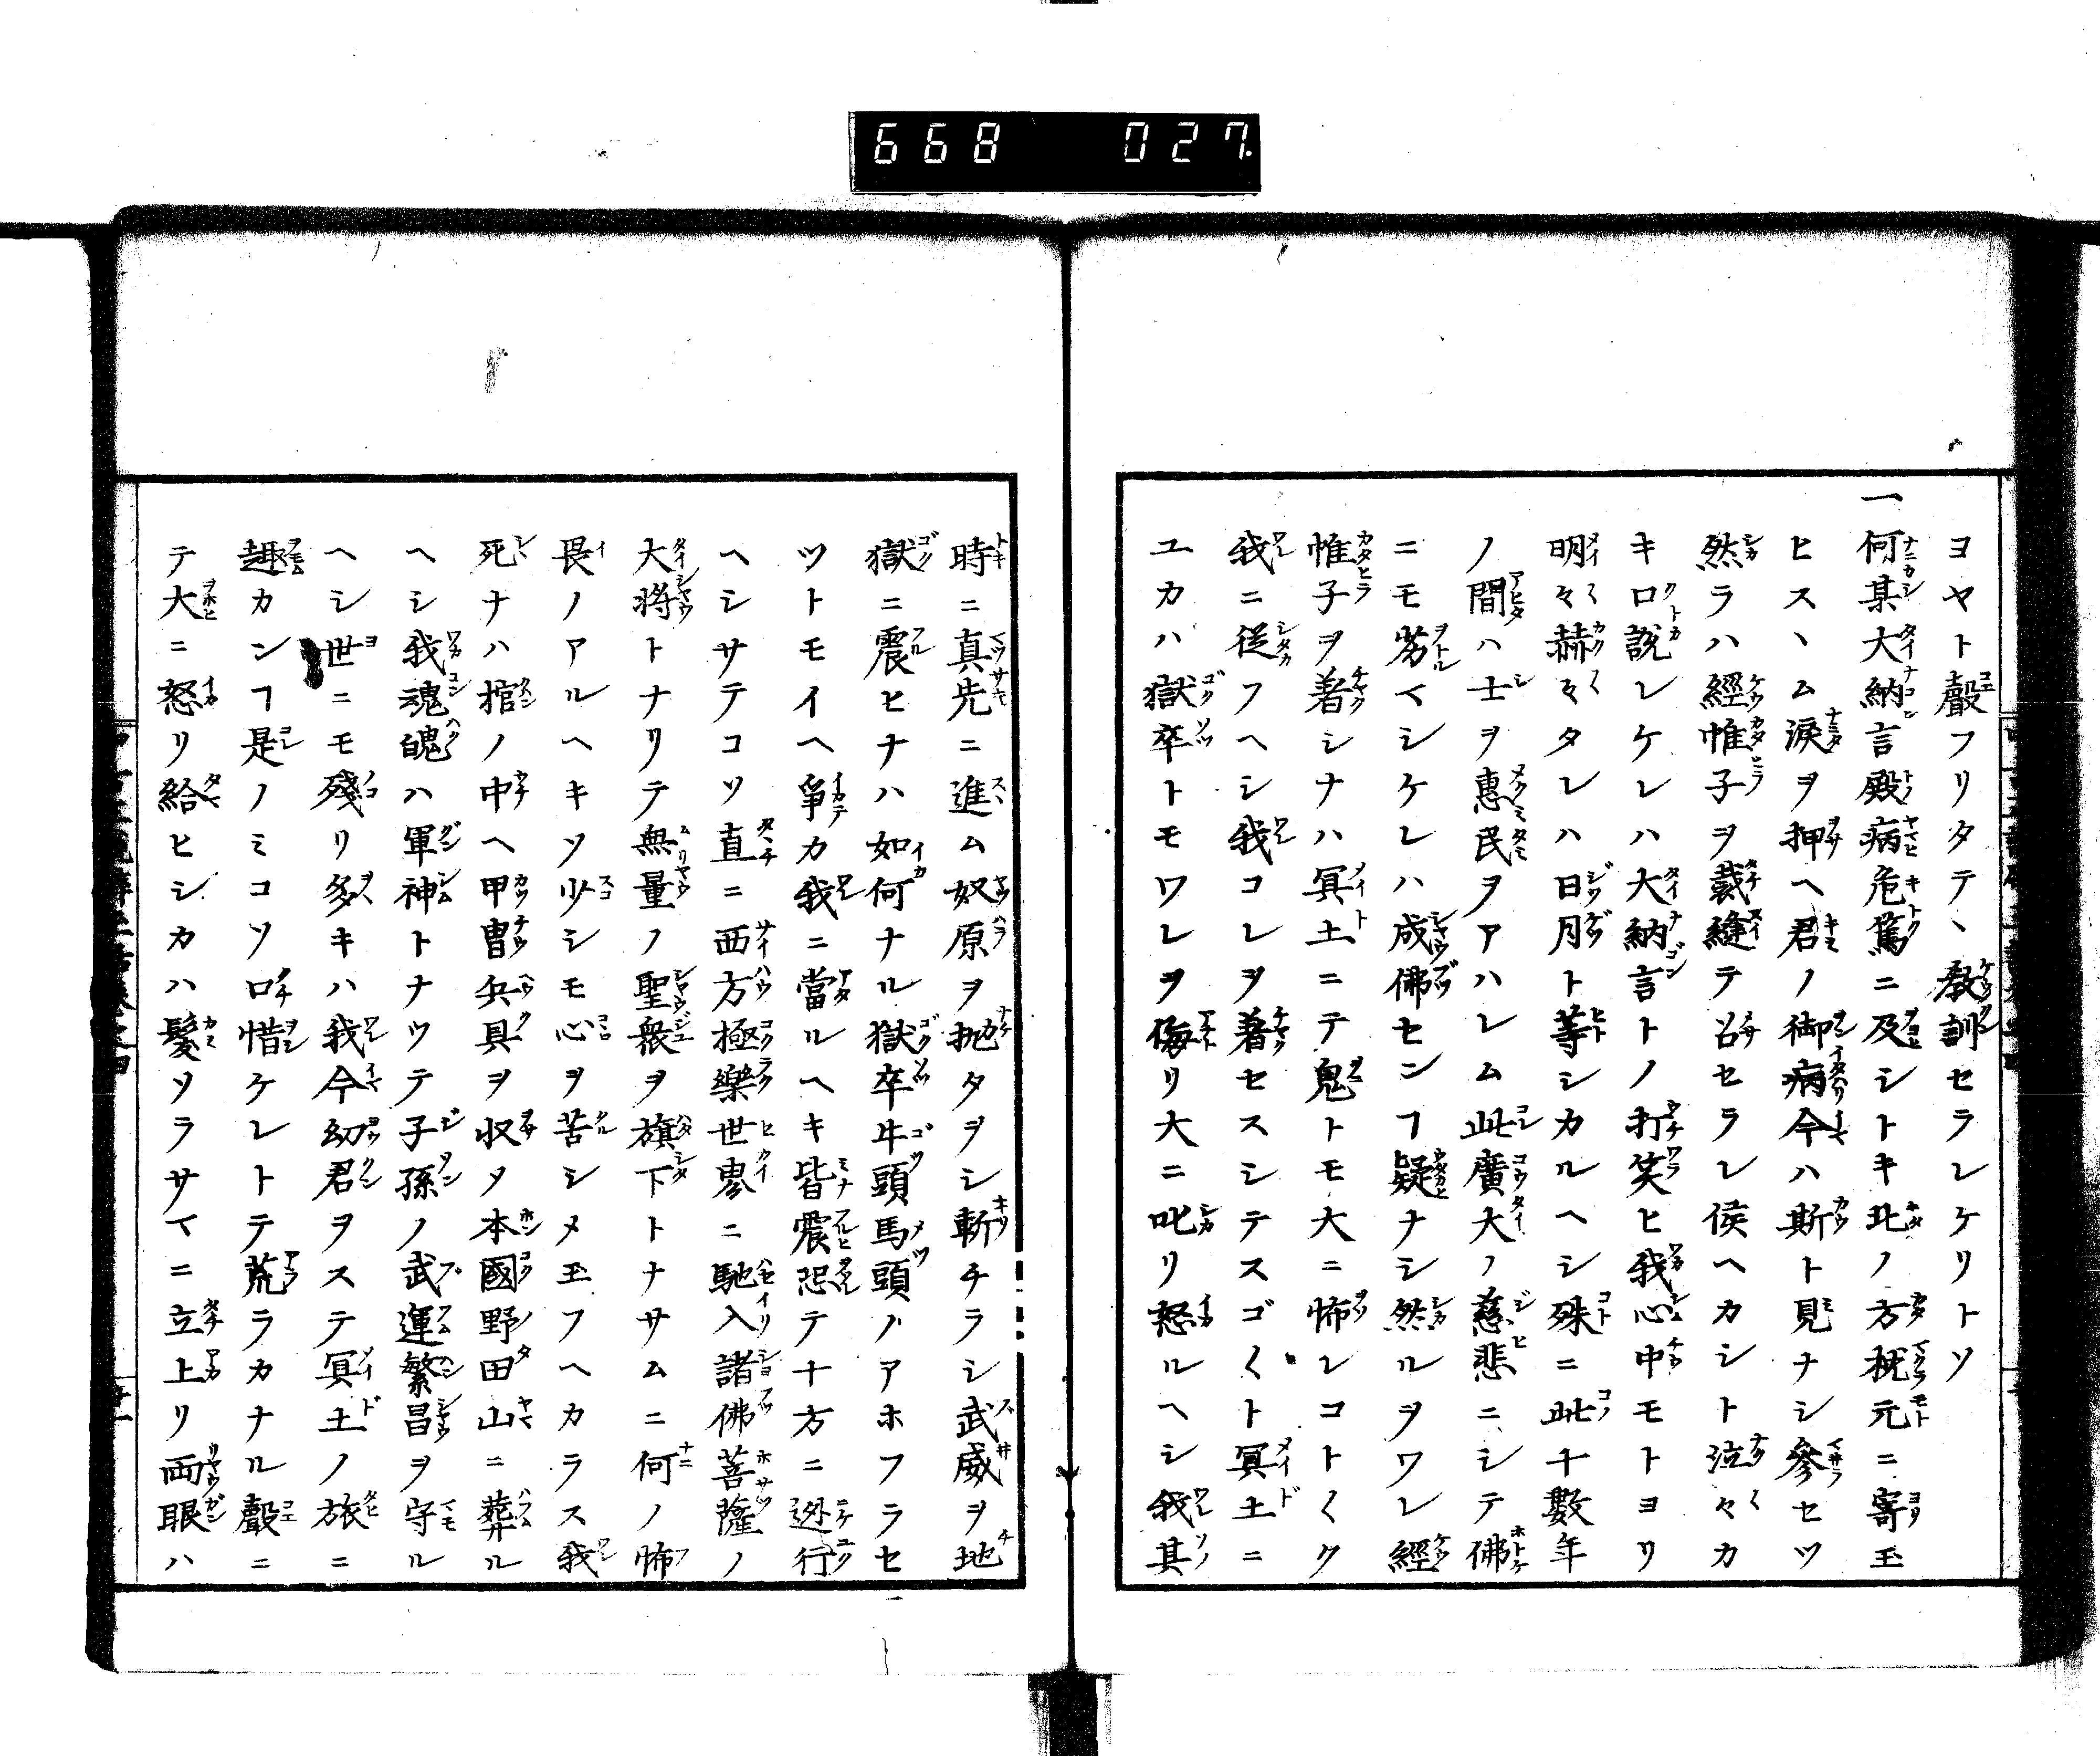 668 027.
ヨヤト聲フリタテヽ教訓セラレケリトソ
一何某大納言殿病危篤ニ及シトキ北ノ方枕元ニ寄玉
ヒスヽム涙ヲ押ヘ君ノ御病今ハ斯ト見ナシ參セツ
然ラハ經帷子ヲ裁縫テ召セラレ侯ヘカシト泣々カ
キロ說レケレハ大納言トノ打笑ヒ我心中モトヨリ
明々赫々タレハ日月ト等シカルヘシ殊ニ此十數年
ノ間ハ士ヲ惠民ヲアハレム此廣大ノ慈悲ニシテ佛
ニモ劣マシケレハ成佛センヿ疑ナシ然ルヲワレ經
帷子ヲ着シナハ冥土ニテ鬼トモ大ニ怖レコト〱ク
我ニ從フヘシ我コレヲ着セスシテスゴ〱ト冥土ニ
ユカハ獄卒トモワレヲ侮リ大ニ叱リ怒ルヘシ我其
時ニ真先ニ進ム奴原ヲ抛タヲシ斬チラシ武威ヲ地
獄ニ震ヒナハ如何ナル獄卒牛頭馬頭ノアホフラセ
ツトモイヘ爭カ我ニ當ルヘキ皆震恐テ十方ニ迯行
ヘシサテコソ直ニ西方極樂世界ニ馳入諸佛菩薩ノ
大將トナリテ無量ノ聖衆ヲ旗下トナサムニ何ノ怖
畏ノアルヘキソ少シモ心ヲ苦シメ玉フヘカラス我
死ナハ棺ノ中ヘ甲冑兵具ヲ収メ本國野田山ニ葬ル
ヘシ我魂魄ハ軍神トナツテ子孫ノ武運繁昌ヲ守ル
ヘシ世ニモ殘リ多キハ我今幼君ヲステ冥土ノ旅ニ
趣カンヿ是ノミコソ口惜ケレトテ荒ラカナル聲ニ
テ大ニ怒リ給ヒシカハ髮ソラサマニ立上リ両眼ハ